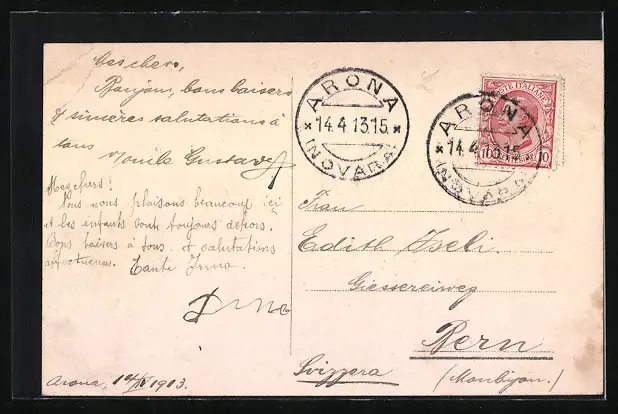 Mes chers,
Bonjour, bons baisers
& sincères salutations à
tous
Gustave
Mes chers!
Nous nous plaisons beaucoup ici
et les enfants sont toujours dehors.
Bons baisers à tous et salutations
affectueuses. Tante Irma.
Arona, 14/IV 1913.
ARONA
* 14.4 13.15 *
(NOVARA)
ARONA
* 14.4 13.15
(NOVARA)
POSTE ITALIANE
10 10
Frau
Edith Iseli
Giessereiweg
Bern
Svizzera (Monbijou.)